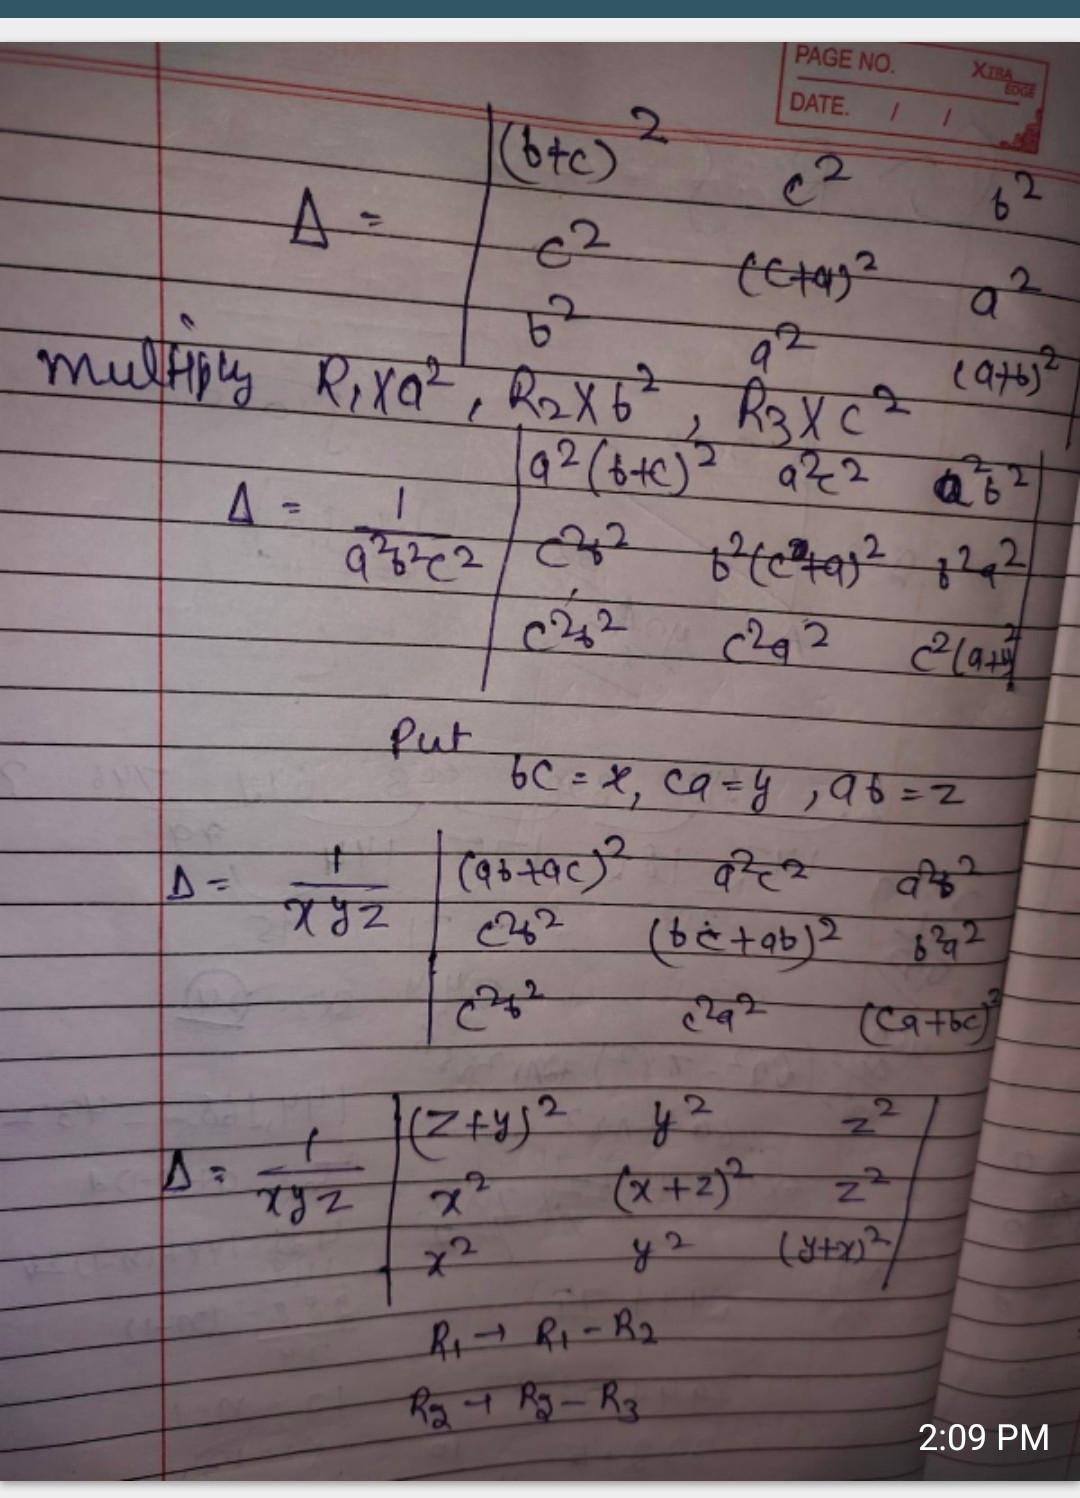 PAGE NO.
XTRA EDGE
DATE. / /
Δ = | (b+c)² c² b² |
| c² (c+a)² a² |
| b² a² (a+b)² |
multiply R₁×a² , R₂×b² , R₃×c²
Δ = 1/a²b²c² | a²(b+c)² a²c² a²b² |
| c²b² b²(c+a)² b²a² |
| c²b² c²a² c²(a+b)² |
Put
bc = x, ca = y , ab = z
Δ = 1/xyz | (ab+ac)² a²c² a²b²
| c²b² (bc+ab)² b²a²
| c²b² c²a² (ca+bc)²
Δ = 1/xyz | (z+y)² y² z² |
| x² (x+z)² z² |
| x² y² (y+x)² |
R₁ → R₁ - R₂
R₂ → R₂ - R₃
2:09 PM